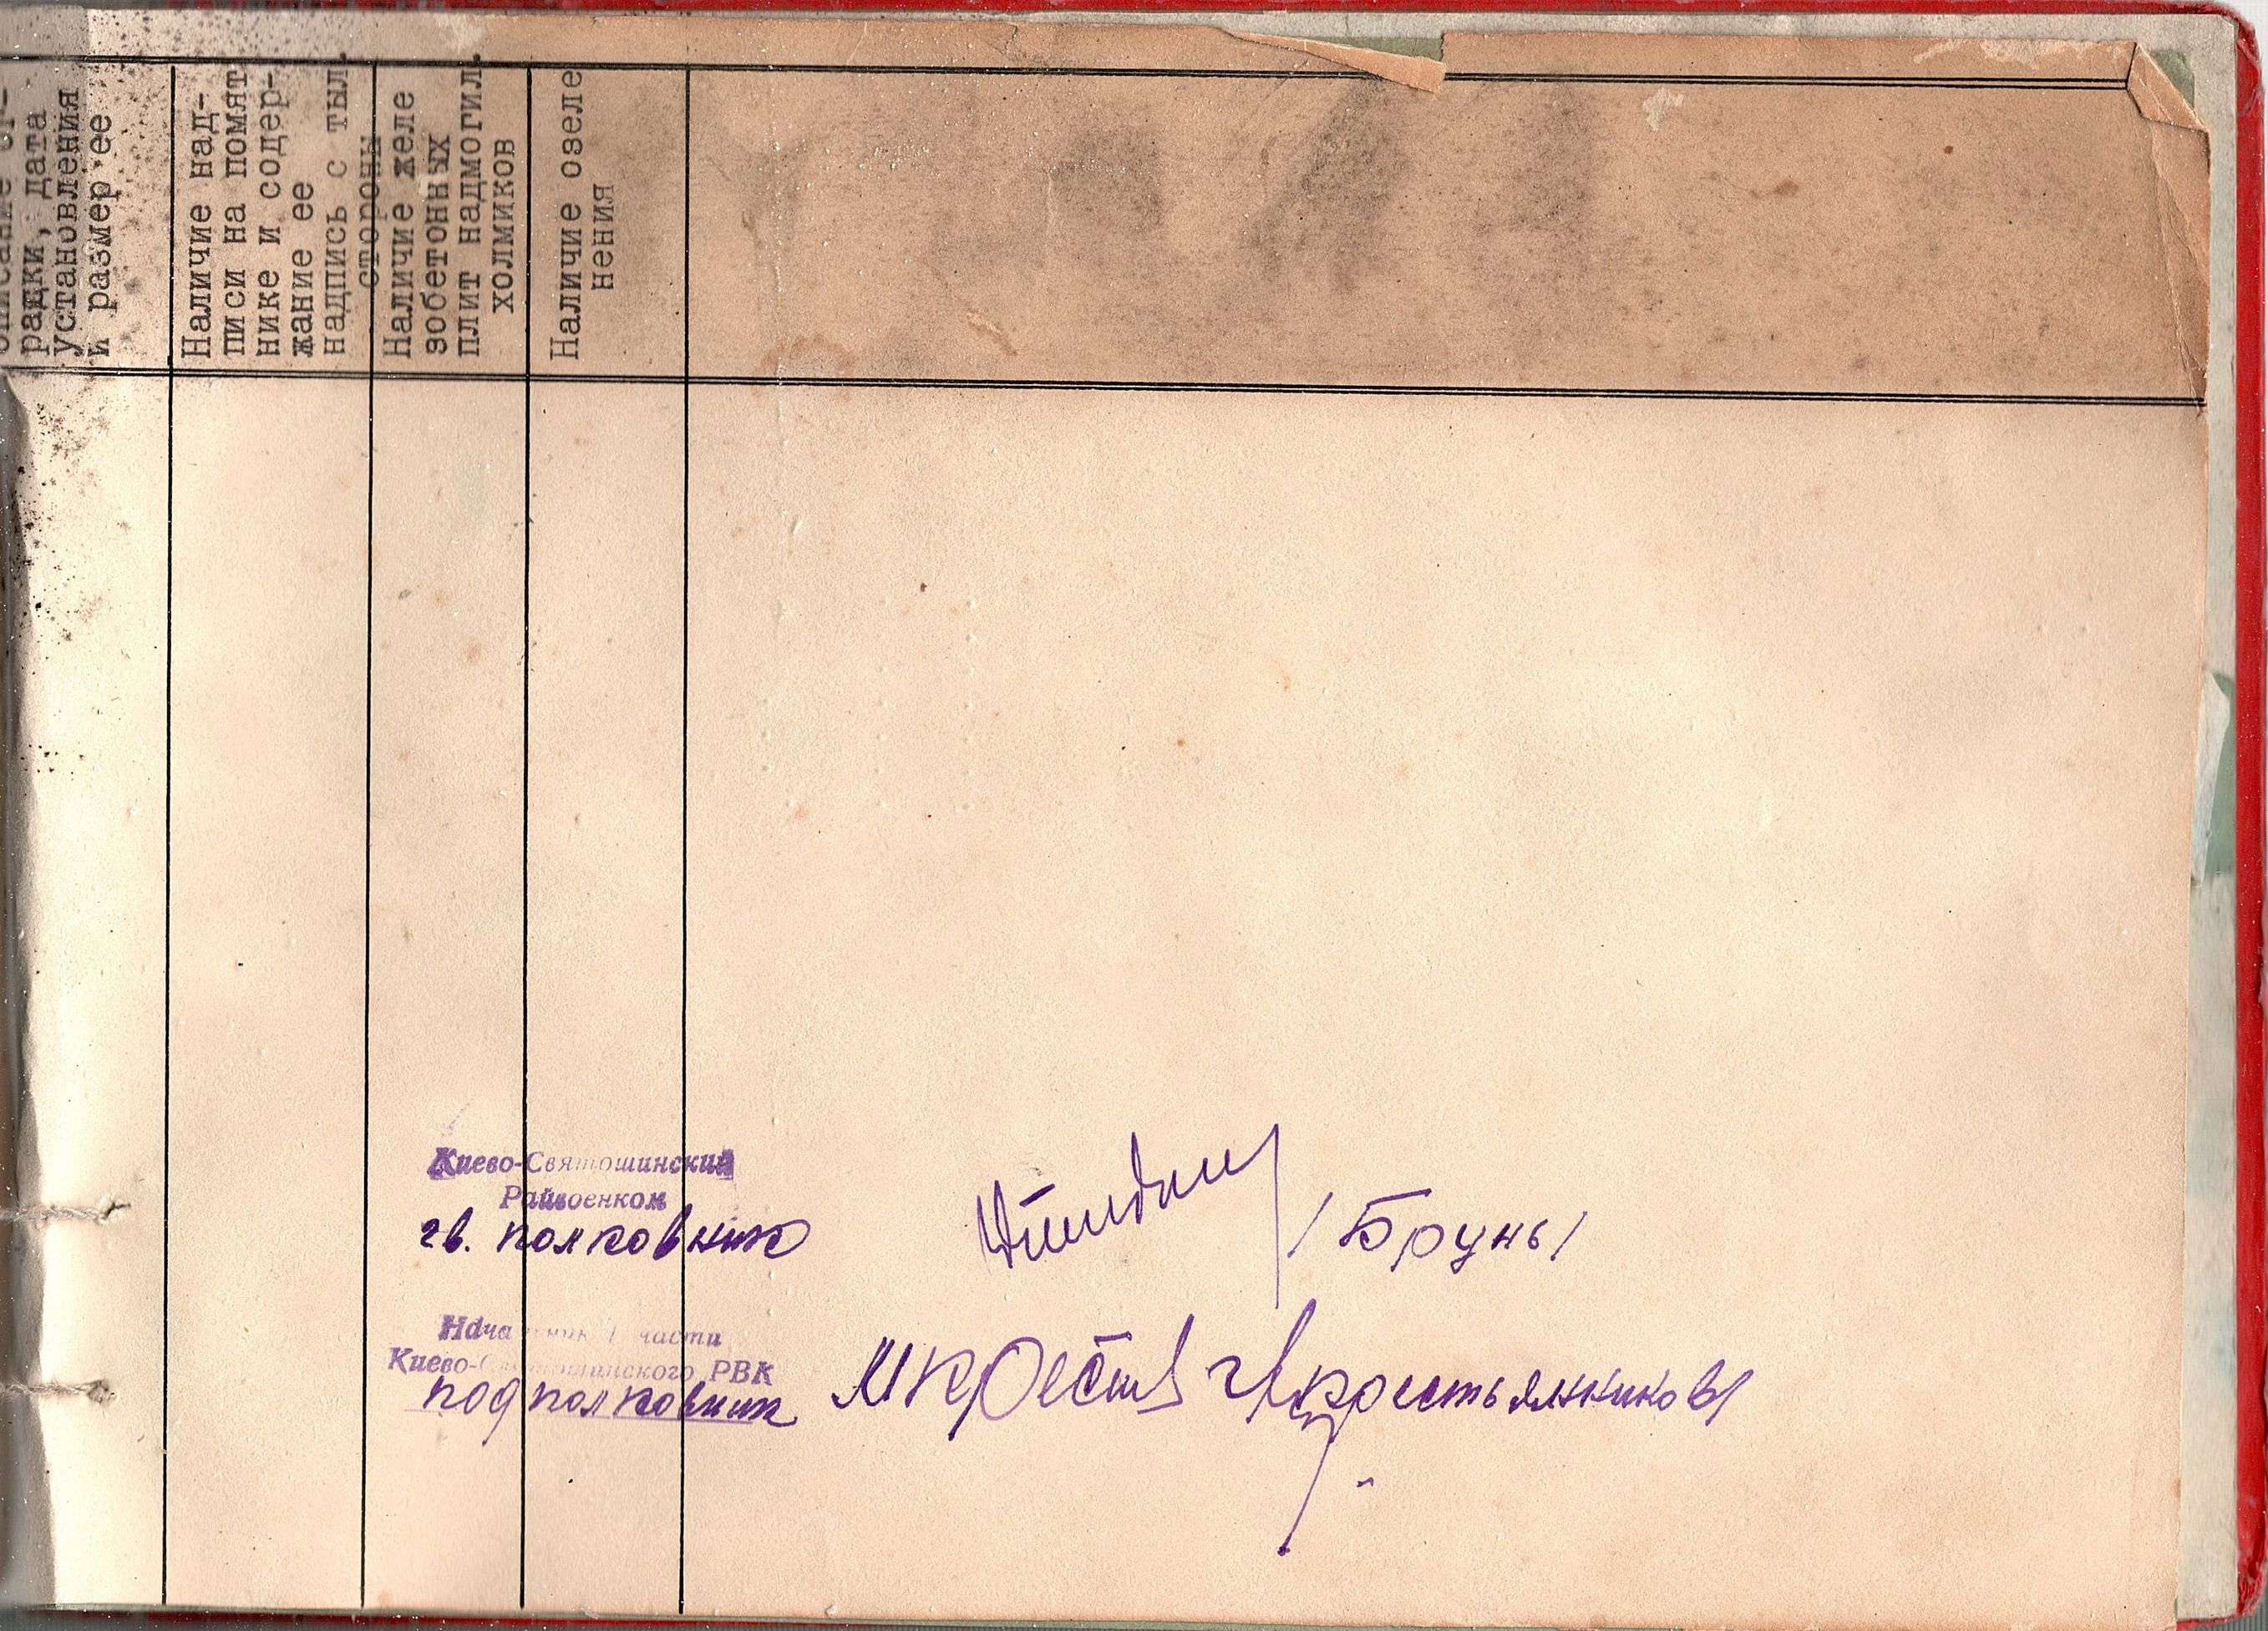 радки, дата
установления
и размер ее
Наличие над-
писи на помят
нике и содер-
жание ее
надпись с тыл.
стороны
Наличие желе
зобетонных
плит надмогил.
холмиков
Наличие озеле
нения
Киево-Святошинский
Райвоенком
гв. полковник /Бруны/
Начальник 1 части
Киево-Святошинского РВК
подполковник /Крестьянников/